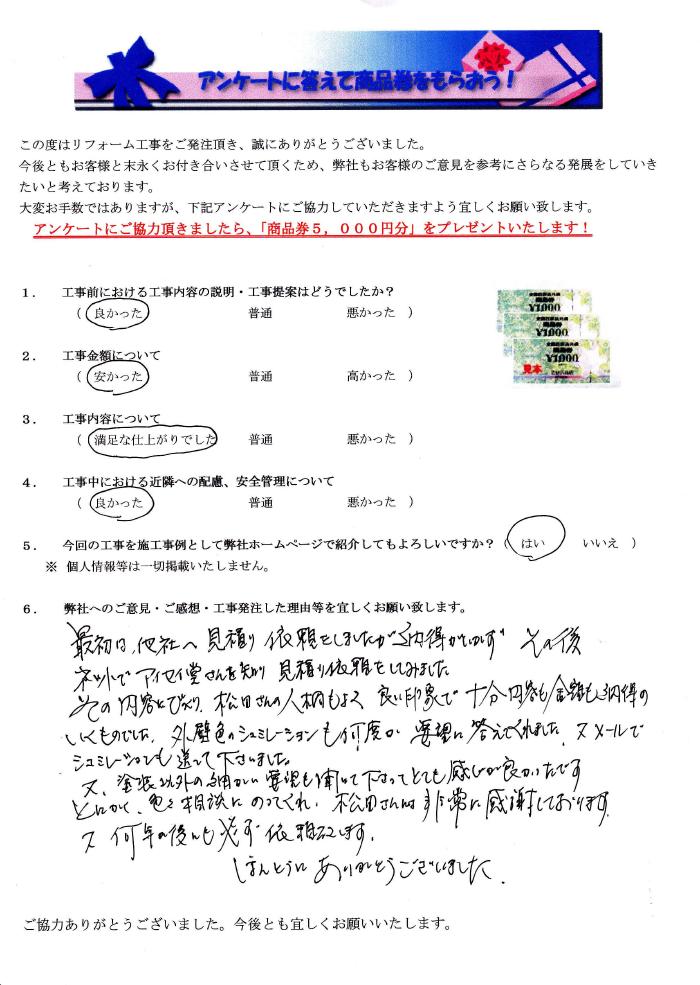 アンケートに答えて商品券をもらおう！
この度はリフォーム工事をご発注頂き、誠にありがとうございました。
今後ともお客様と末永くお付き合いさせて頂くため、弊社もお客様のご意見を参考にさらなる発展をしていき
たいと考えております。
大変お手数ではありますが、下記アンケートにご協力していただきますよう宜しくお願い致します。
アンケートにご協力頂きましたら、「商品券５，０００円分」をプレゼントいたします！
１． 工事前における工事内容の説明・工事提案はどうでしたか？
（ 良かった 普通 悪かった ）
¥1,000
¥1,000
商品券
¥1,000
見本
２． 工事金額について
（ 安かった 普通 高かった ）
３． 工事内容について
（ 満足な仕上がりでした 普通 悪かった ）
４． 工事中における近隣への配慮、安全管理について
（ 良かった 普通 悪かった ）
５． 今回の工事を施工事例として弊社ホームページで紹介してもよろしいですか？（ はい いいえ ）
※ 個人情報等は一切掲載いたしません。
６． 弊社へのご意見・ご感想・工事発注した理由等を宜しくお願い致します。
最初は、他社へ見積り依頼をしましたが納得がいかず その後
ネットでアイセイ堂さんを知り 見積り依頼をしてみました。
その内容とぴったり、松田さんの人柄もよく 良い印象で十分内容も金額も納得の
いくものでした。外壁色のシュミレーションも何度か 要望に答えてくれました。又メールで
シュミレーションも送って下さいました。
又、塗装以外の細かい要望も聞いて下さってとても感じが良かったです
とにかく、色々相談にのってくれ、松田さんには非常に感謝しております。
又 何年か後にも必ず依頼します。
ほんとうに ありがとうございました。
ご協力ありがとうございました。今後とも宜しくお願いいたします。